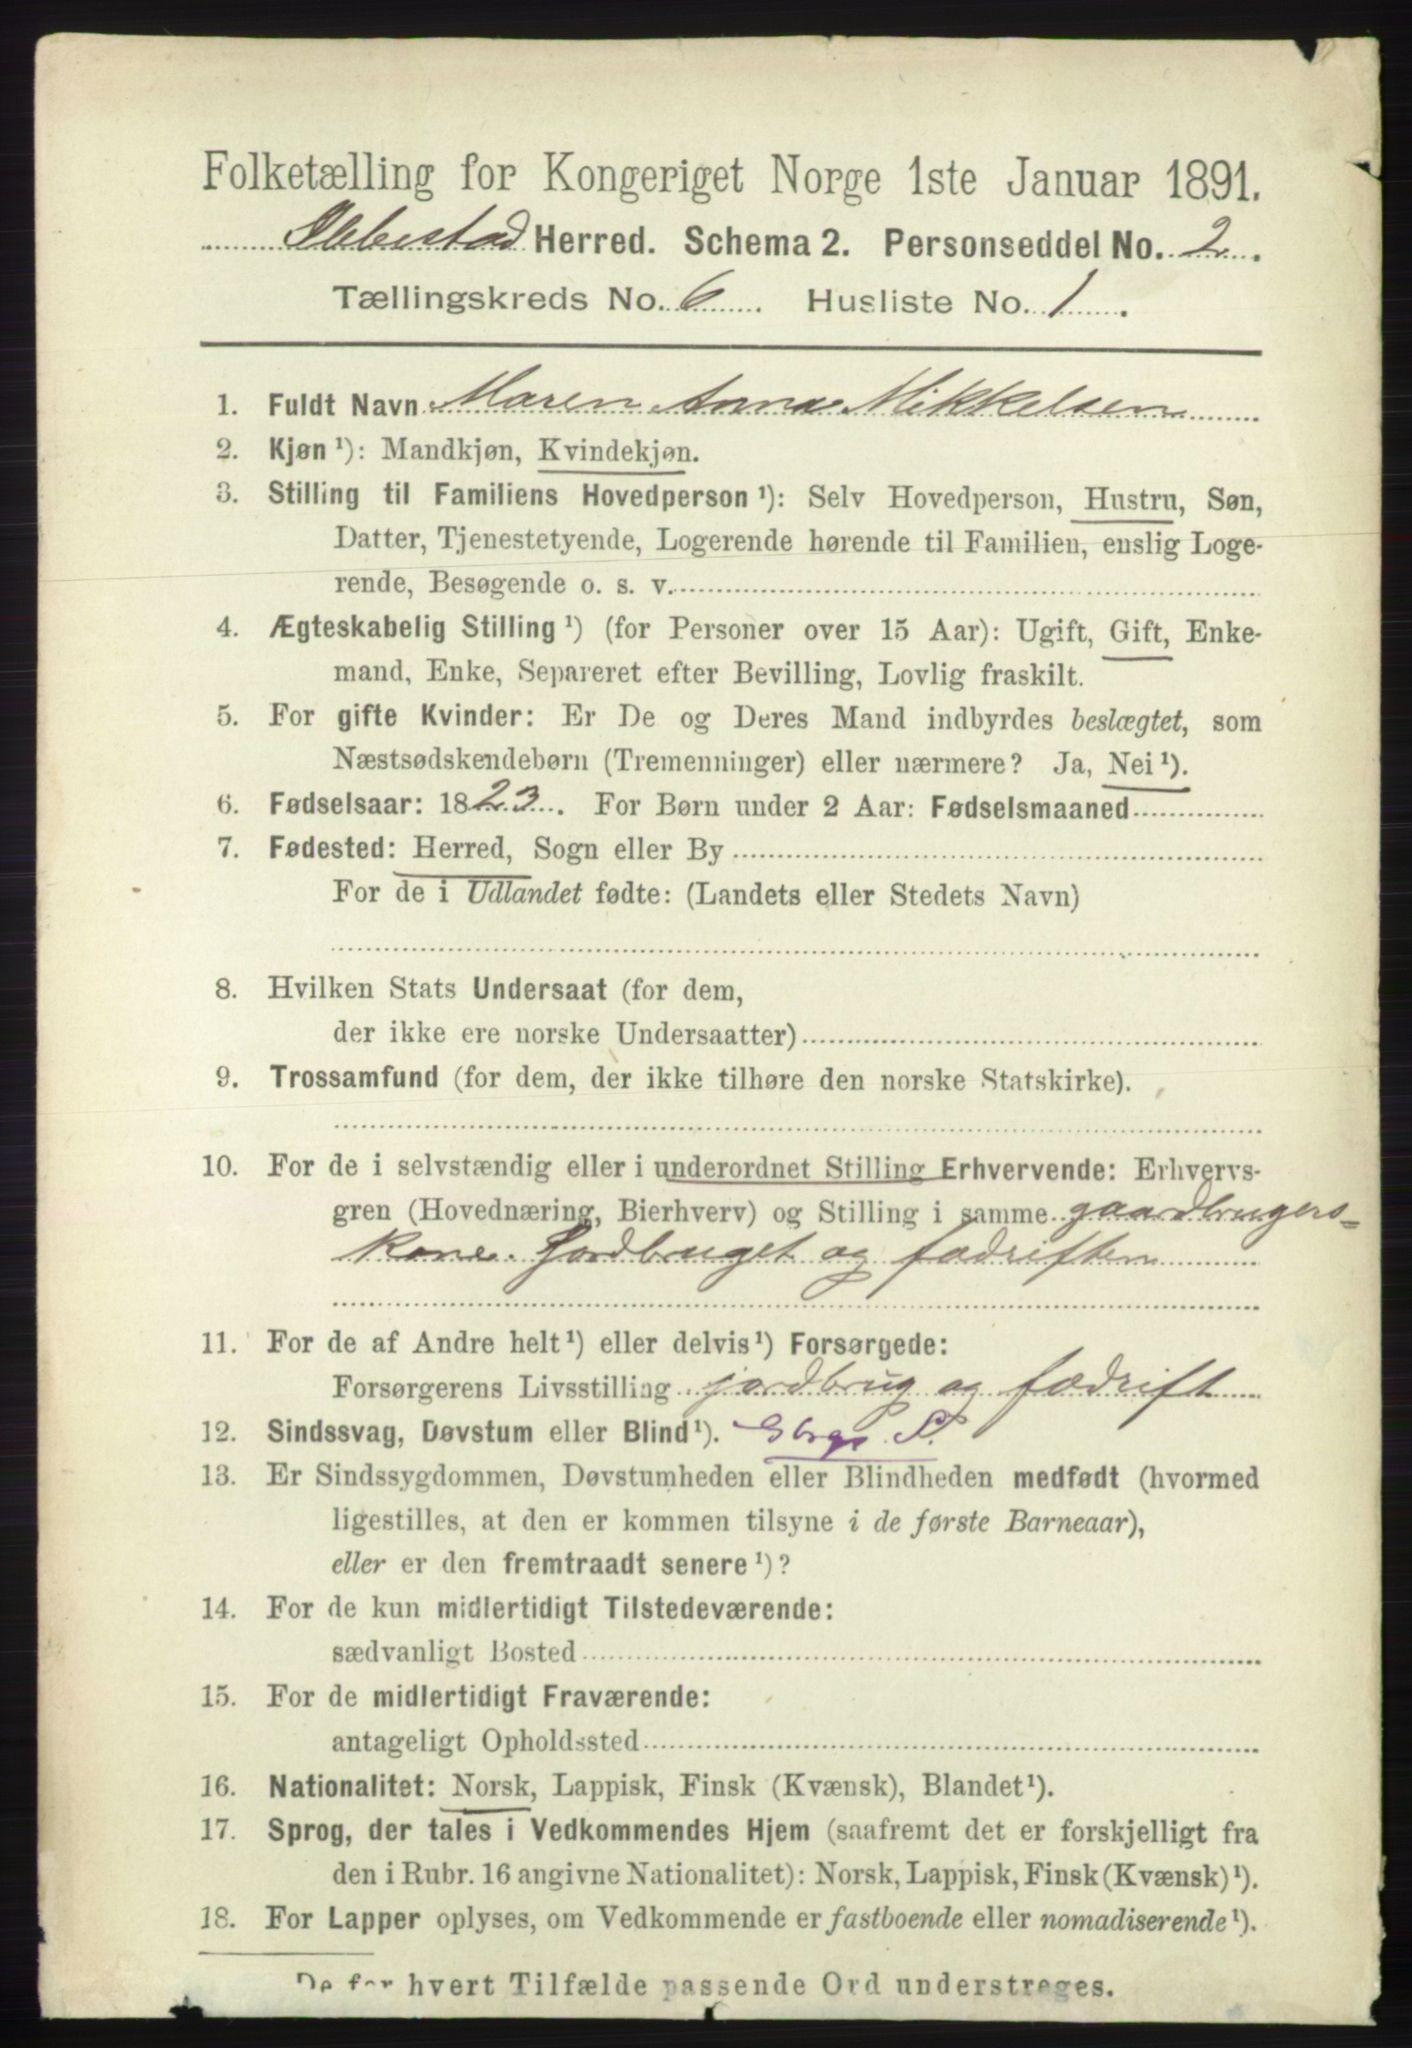 Folketælling for Kongeriget Norge 1ste Januar 1891.
Ibbestad Herred. Schema 2. Personseddel No. 2.
Tællingskreds No. 6. Husliste No. 1.
1. Fuldt Navn Maren Anna Mikkelsen
2. Kjøn ¹): Mandkjøn, Kvindekjøn.
3. Stilling til Familiens Hovedperson ¹): Selv Hovedperson, Hustru, Søn,
Datter, Tjenestetyende, Logerende hørende til Familien, enslig Loge-
rende, Besøgende o. s. v.
4. Ægteskabelig Stilling ¹) (for Personer over 15 Aar): Ugift, Gift, Enke-
mand, Enke, Separeret efter Bevilling, Lovlig fraskilt.
5. For gifte Kvinder: Er De og Deres Mand indbyrdes beslægtet, som
Næstsødskendebørn (Tremenninger) eller nærmere? Ja, Nei ¹).
6. Fødselsaar: 1823. For Børn under 2 Aar: Fødselsmaaned
7. Fødested: Herred, Sogn eller By
For de i Udlandet fødte: (Landets eller Stedets Navn)
8. Hvilken Stats Undersaat (for dem,
der ikke ere norske Undersaatter)
9. Trossamfund (for dem, der ikke tilhøre den norske Statskirke).
10. For de i selvstændig eller i underordnet Stilling Erhvervende: Erhvervs-
gren (Hovednæring, Bierhverv) og Stilling i samme gaardbrugers-
kone. Jordbruget og fædriften
11. For de af Andre helt ¹) eller delvis ¹) Forsørgede:
Forsørgerens Livsstilling jordbrug og fædrift
12. Sindssvag, Døvstum eller Blind ¹).
13. Er Sindssygdommen, Døvstumheden eller Blindheden medfødt (hvormed
ligestilles, at den er kommen tilsyne i de første Barneaar),
eller er den fremtraadt senere ¹)?
14. For de kun midlertidigt Tilstedeværende:
sædvanligt Bosted
15. For de midlertidigt Fraværende:
antageligt Opholdssted
16. Nationalitet: Norsk, Lappisk, Finsk (Kvænsk), Blandet ¹).
17. Sprog, der tales i Vedkommendes Hjem (saafremt det er forskjelligt fra
den i Rubr. 16 angivne Nationalitet): Norsk, Lappisk, Finsk (Kvænsk) ¹).
18. For Lapper oplyses, om Vedkommende er fastboende eller nomadiserende ¹).
De for hvert Tilfælde passende Ord understreges.